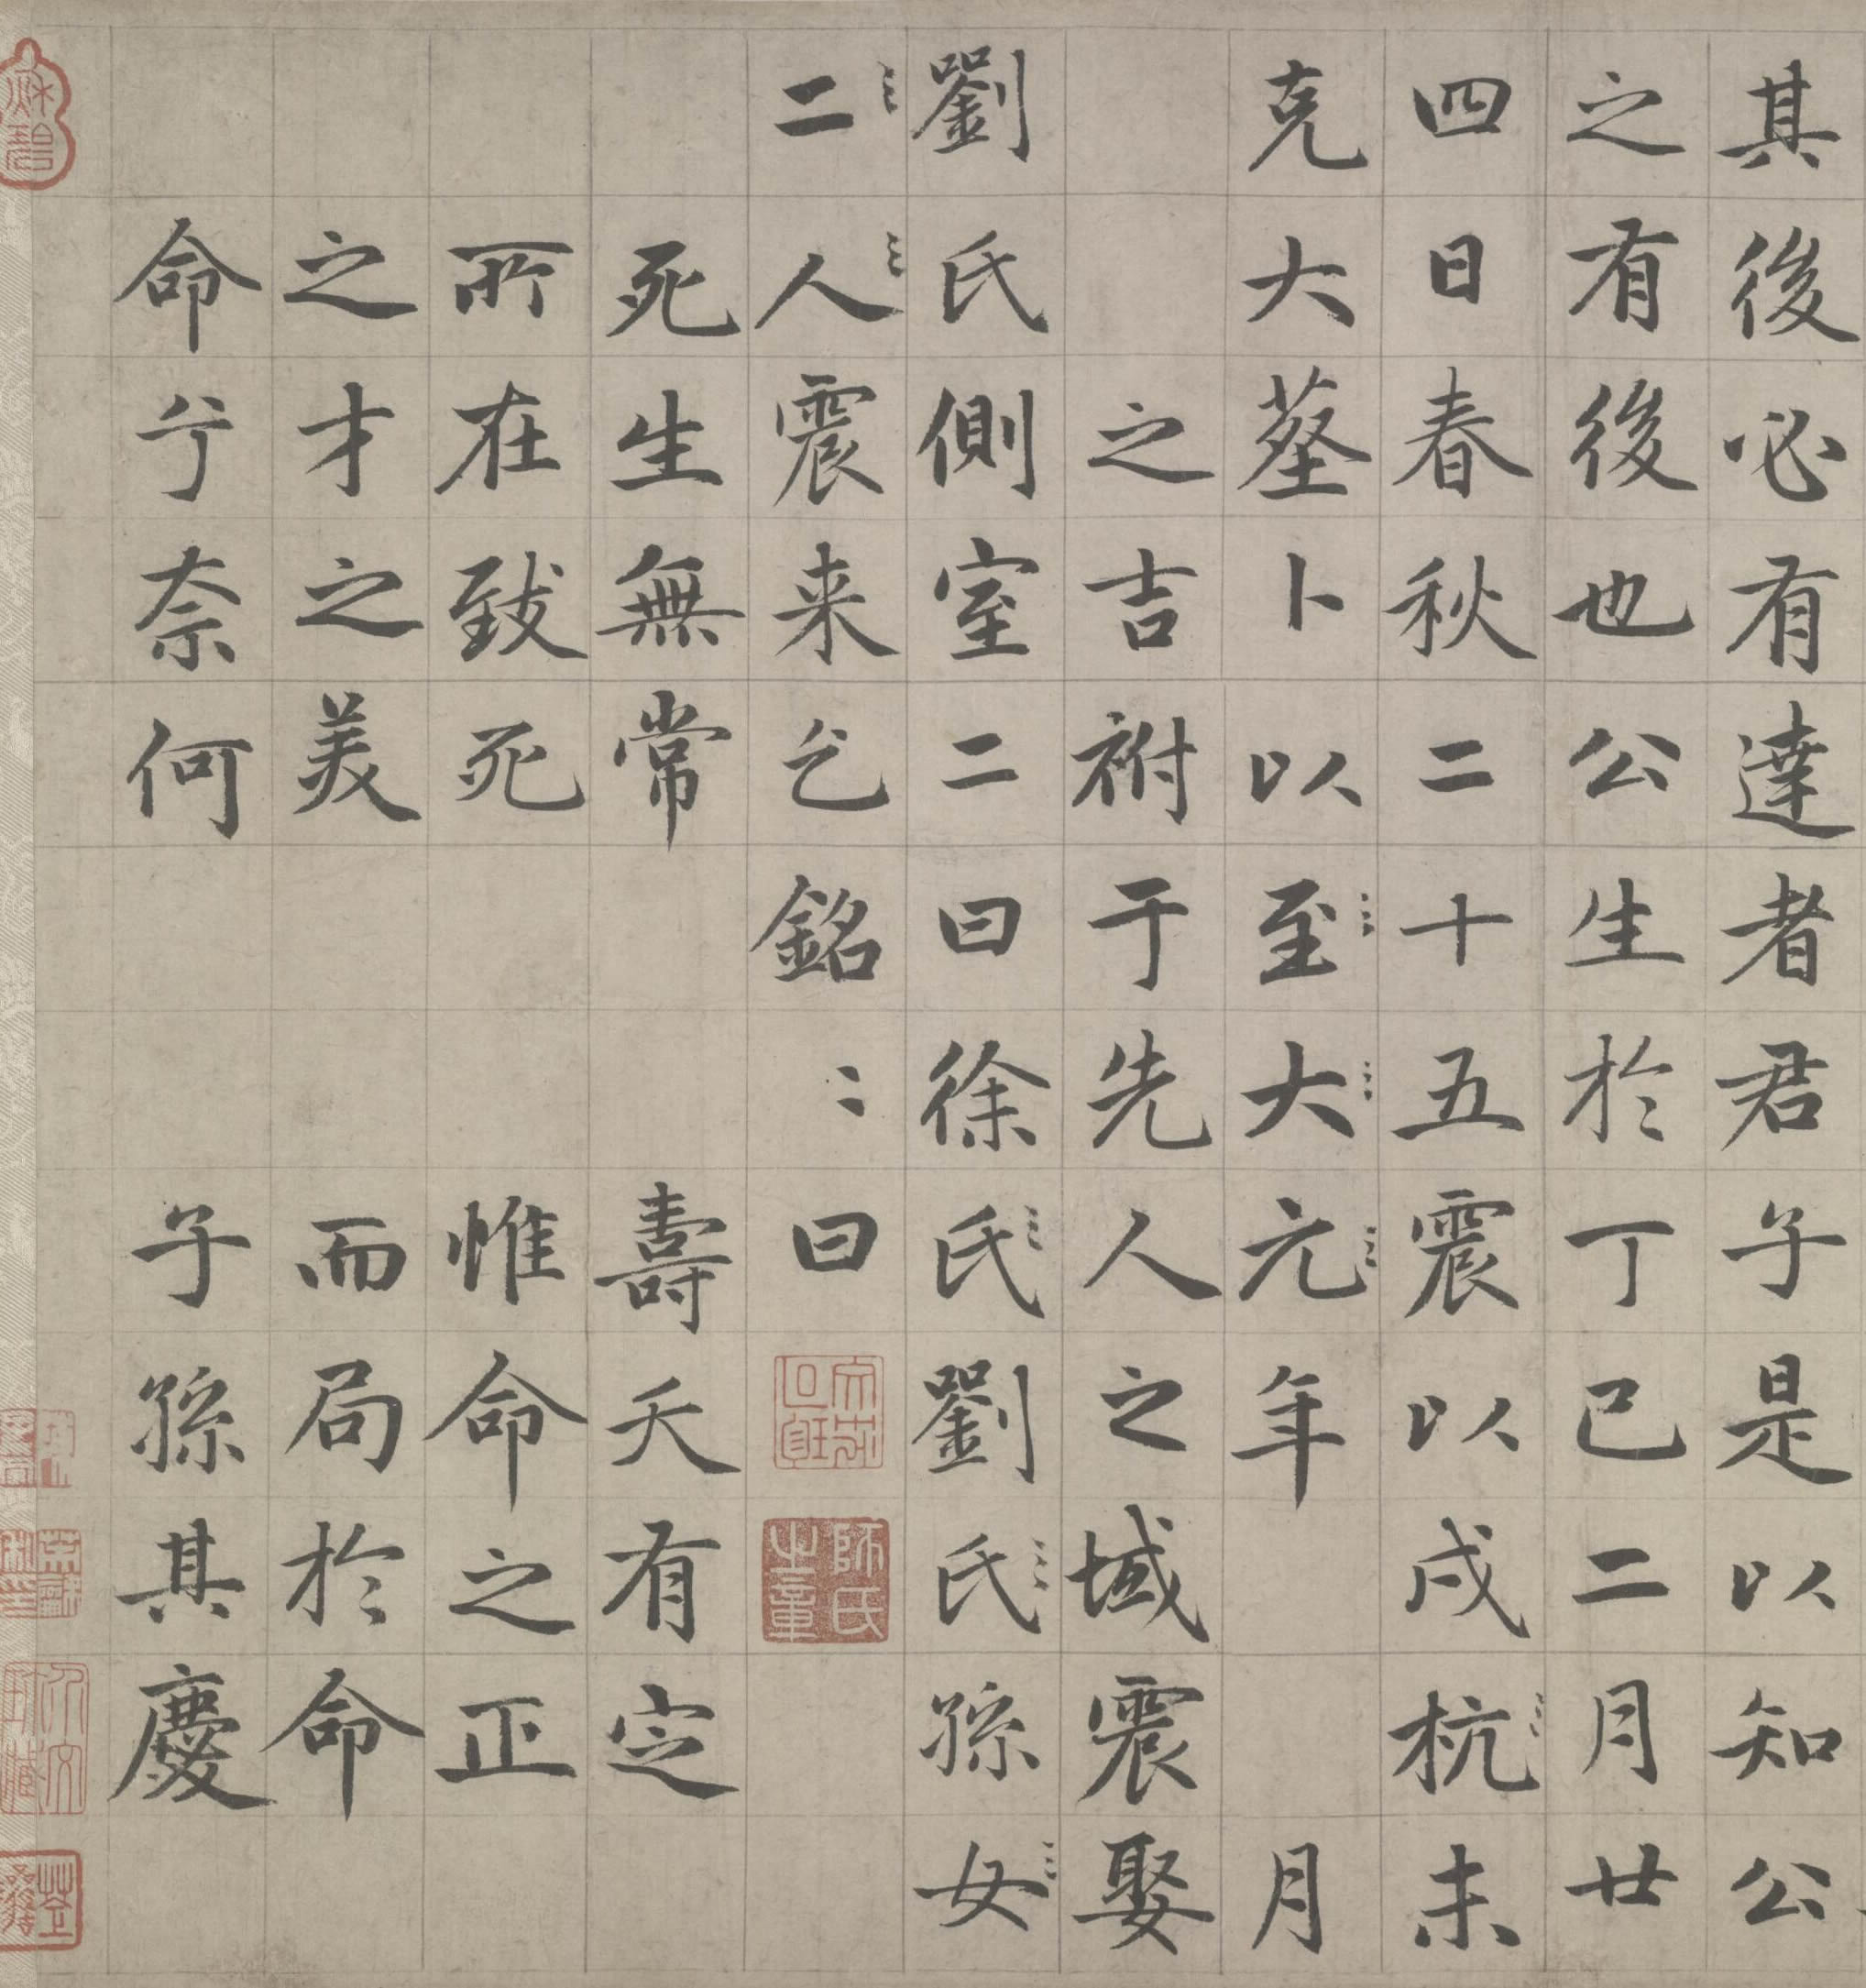 其後必有達者君子是以知公
之有後也公生於丁巳二月廿
四日春秋二十五震以戌杭未
克大塟卜以至大元年 月
之吉祔于先人之域震娶
劉氏側室二曰徐氏劉氏孫女
二人震来乞銘〻曰
死生無常 壽夭有定
所在致死 惟命之正
之才之美 而局於命
命兮奈何 子孫其慶
師氏